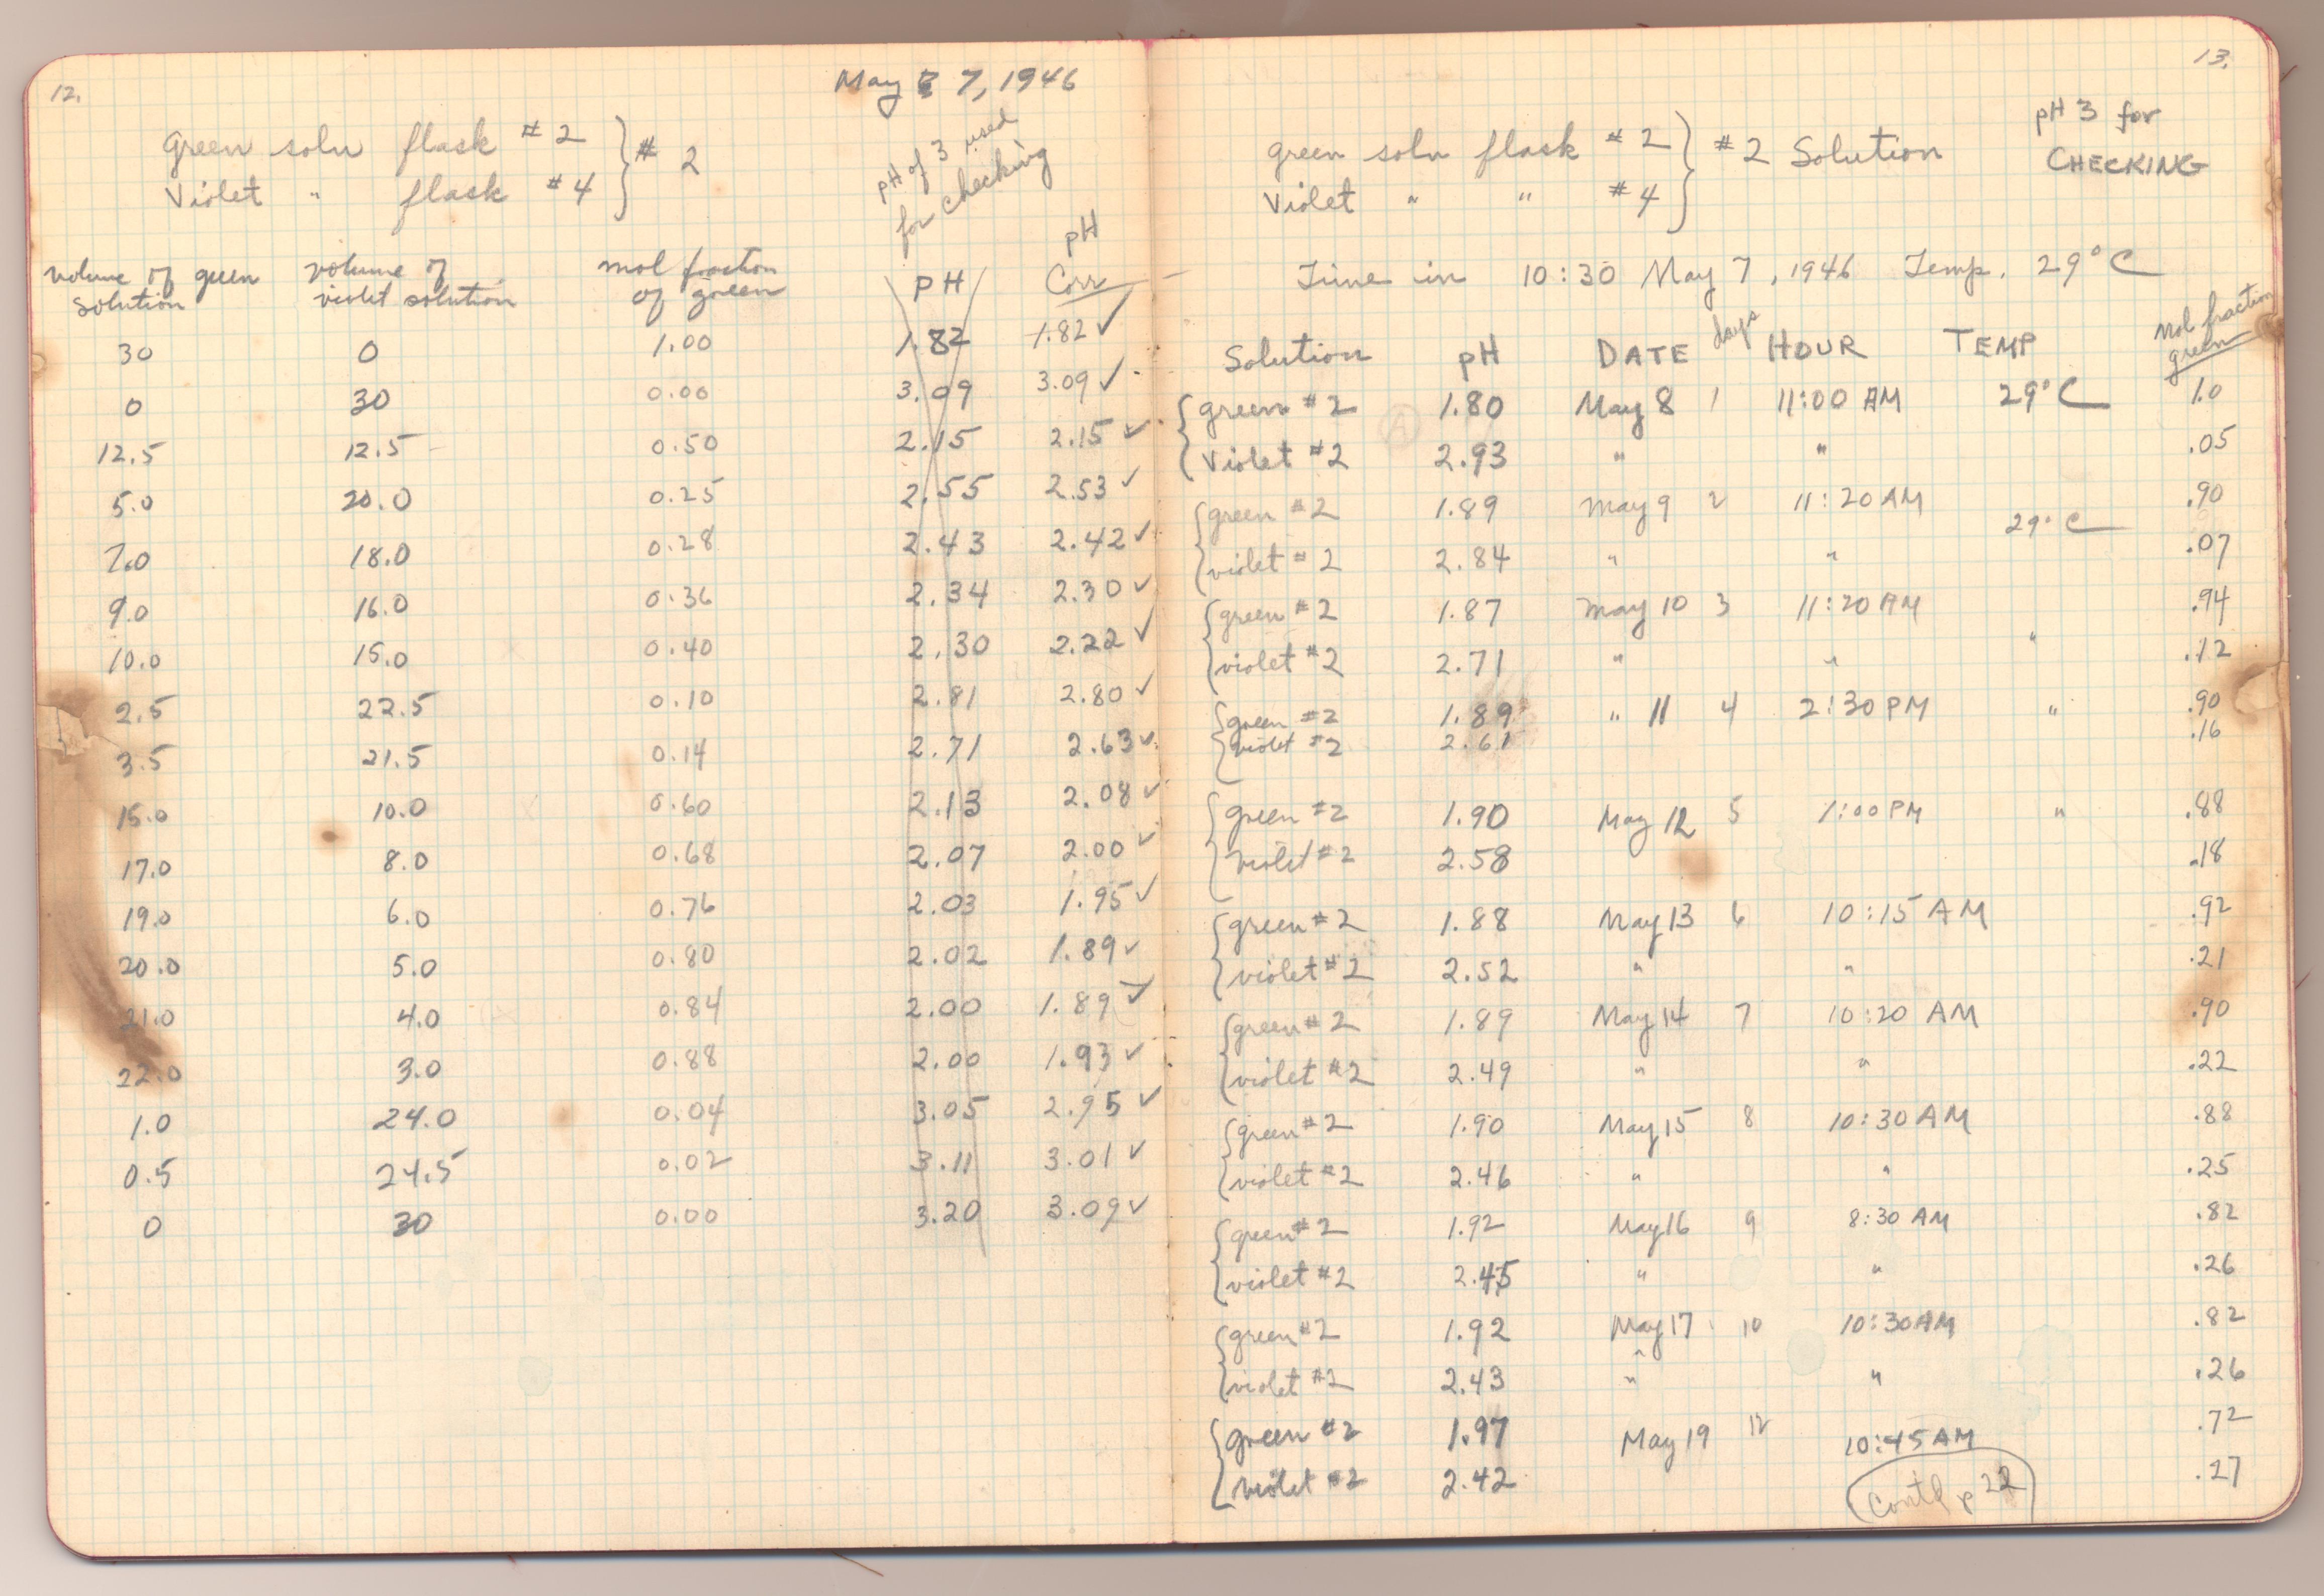 12.
May 7, 1946
green soln flask #2 } # 2
Violet " flask #4
pH of 3 used
for checking
volume of green solution volume of violet solution mol fraction of green pH pH Corr
30 0 1.00 1.82 1.82 ✓
0 30 0.00 3.09 3.09 ✓
12.5 12.5 0.50 2.15 2.15 ✓
5.0 20.0 0.25 2.55 2.53 ✓
7.0 18.0 0.28 2.43 2.42 ✓
9.0 16.0 0.36 2.34 2.30 ✓
10.0 15.0 0.40 2.30 2.22 ✓
2.5 22.5 0.10 2.81 2.80 ✓
3.5 21.5 0.14 2.71 2.63 ✓
15.0 10.0 0.60 2.13 2.08 ✓
17.0 8.0 0.68 2.07 2.00 ✓
19.0 6.0 0.76 2.03 1.95 ✓
20.0 5.0 0.80 2.02 1.89 ✓
21.0 4.0 0.84 2.00 1.89 ✓
22.0 3.0 0.88 2.00 1.93 ✓
1.0 24.0 0.04 3.05 2.95 ✓
0.5 24.5 0.02 3.11 3.01 ✓
0 30 0.00 3.20 3.09 ✓
13.
green soln flask #2 } #2 Solution
Violet " " #4
pH 3 for
CHECKING
Time in 10:30 May 7, 1946 Temp. 29°C
Solution pH DATE days HOUR TEMP mol fraction green
green #2 1.80 May 8 1 11:00 AM 29°C 1.0
Violet #2 2.93 " " .05
green #2 1.89 May 9 2 11:20 AM 29°C .90
violet #2 2.84 " " .07
green #2 1.87 May 10 3 11:20 AM " .94
violet #2 2.71 " " .12
green #2 1.89 " 11 4 2:30 PM " .90
violet #2 2.61 .16
green #2 1.90 May 12 5 1:00 PM " .88
violet #2 2.58 .18
green #2 1.88 May 13 6 10:15 AM .92
violet #2 2.52 " " .21
green #2 1.89 May 14 7 10:20 AM .90
violet #2 2.49 " " .22
green #2 1.90 May 15 8 10:30 AM .88
violet #2 2.46 " " .25
green #2 1.92 May 16 9 8:30 AM .82
violet #2 2.45 " " .26
green #2 1.92 May 17 10 10:30 AM .82
violet #2 2.43 " " .26
green #2 1.97 May 19 12 10:45 AM .72
violet #2 2.42 .27
Contd p 22